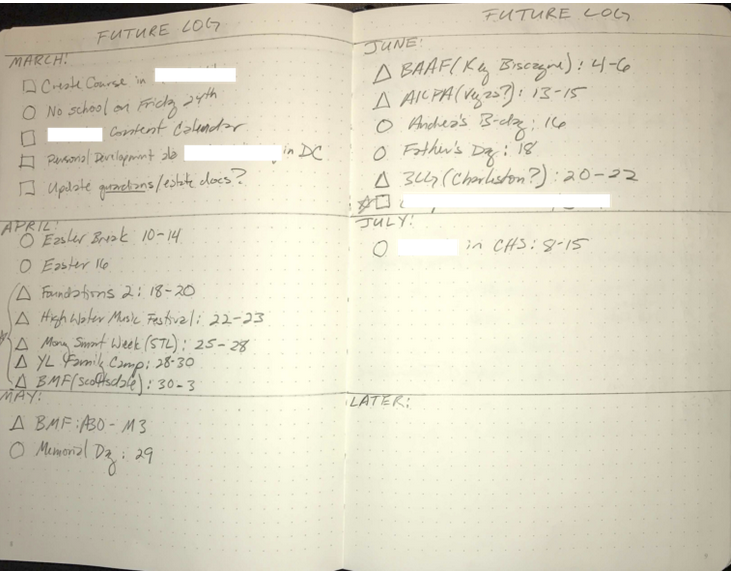 FUTURE LOG
MARCH:
Create Course in
No school on Friday 24th
Content Calendar
Personal Development in DC
Update guardians/estate docs?
APRIL:
Easter Break 10-14
Easter 16
Foundations 2: 18-20
High Water Music Festival: 22-23
Money Smart Week (STL): 25-28
YL Family Camp: 28-30
BMF (Scottsdale): 30-3
MAY:
BMF: A30 - M3
Memorial Day: 29
FUTURE LOG
JUNE:
BAAF (Key Biscayne): 4-6
AICPA (Vegas?): 13-15
Andrea's B-day: 16
Father's Day: 18
(Charleston?): 20-22
JULY:
in CHS: 8-15
LATER: